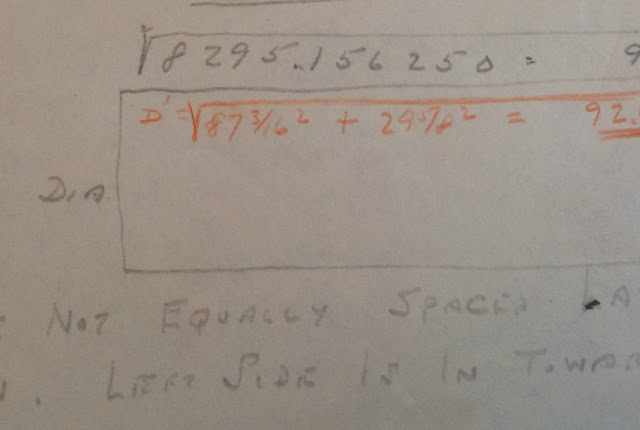 √8295.156250 = 9
D' = √87 3/16² + 29 5/8² = 92.
DIA
NOT EQUALLY SPACED. LA
. LEFT SIDE IS IN TOWAR